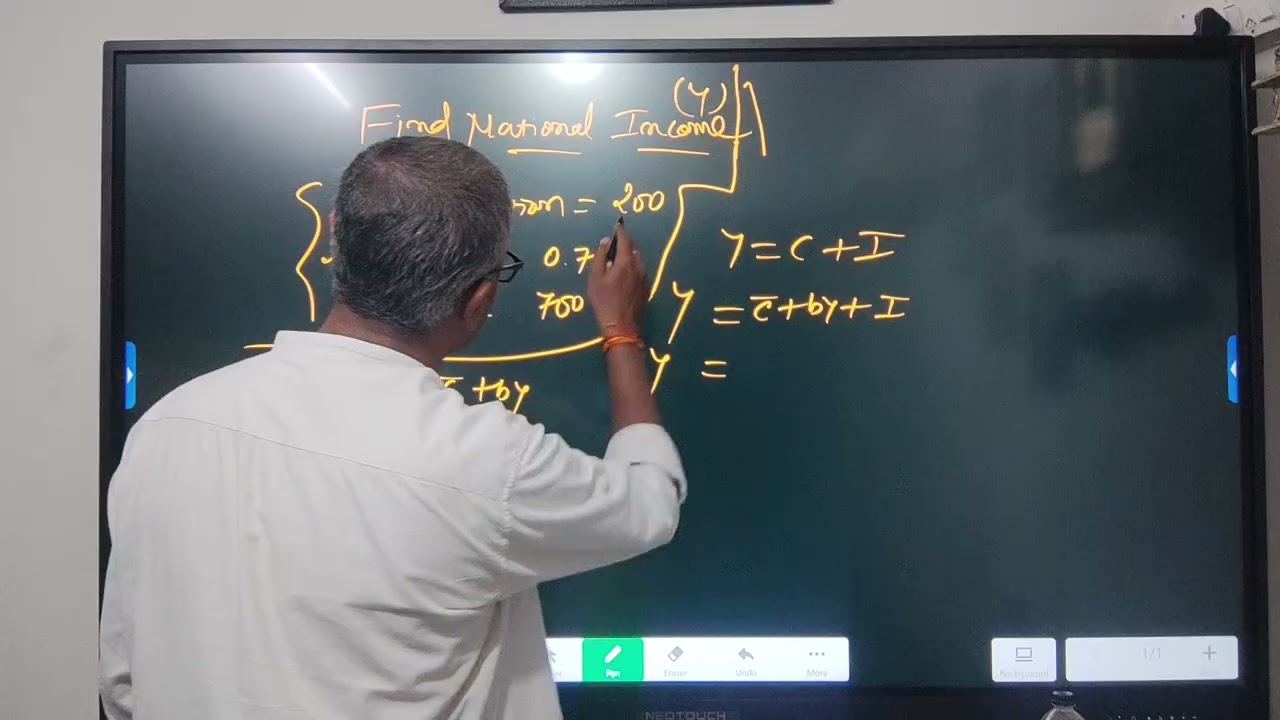 Find National Income (Y)
= 200
0.7
700
Y = C + I
Y = C̅ + bY + I
Y =
C̅ + bY
Pen
Eraser
Undo
More
Background
1/1
NEOTOUCH